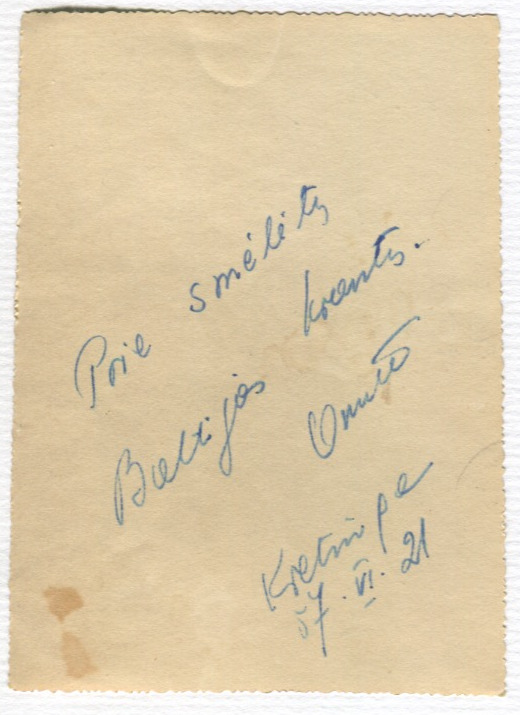 Prie smėlėtų
Baltijos krantų.
Onutė
Kretinga
57. VI. 21